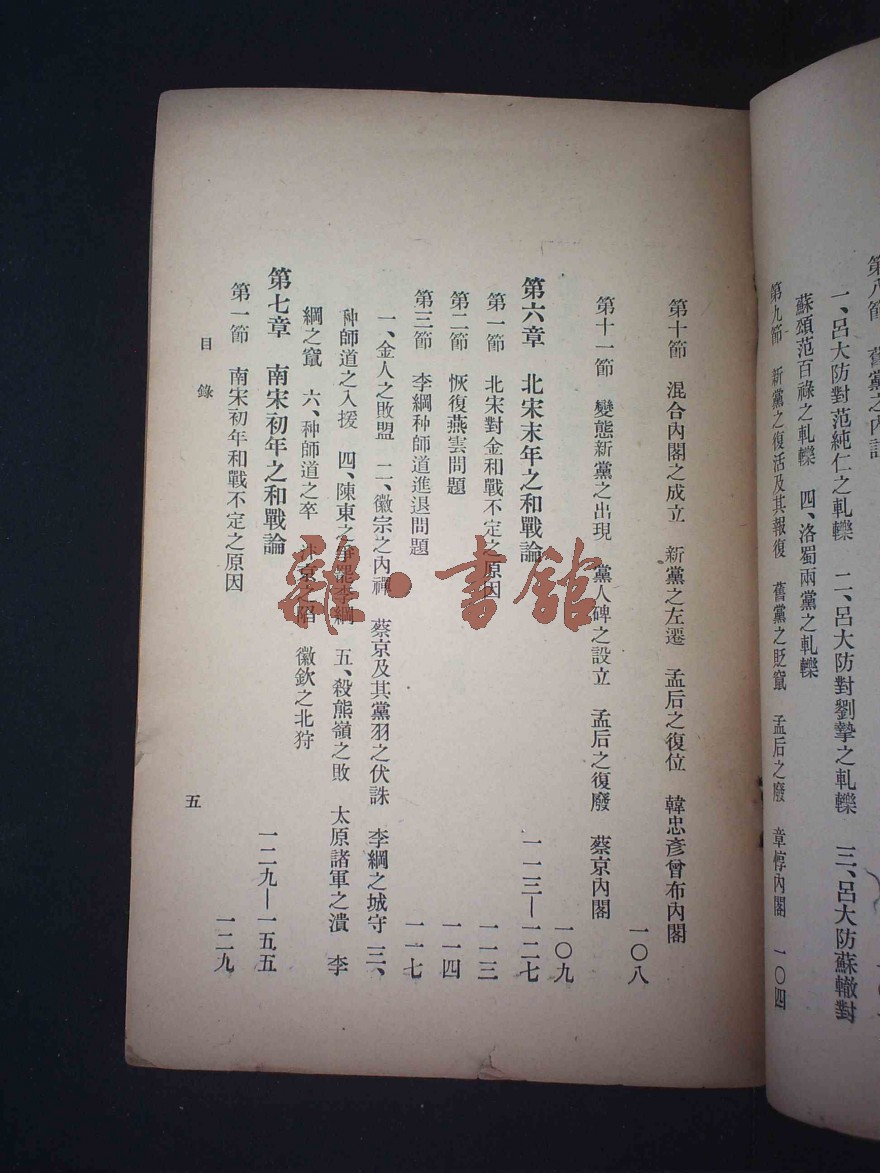 第八節 舊黨之內訌
一、呂大防對范純仁之軋轢 二、呂大防對劉摯之軋轢 三、呂大防蘇轍對
蘇頌范百祿之軋轢 四、洛蜀兩黨之軋轢
第九節 新黨之復活及其報復 舊黨之貶竄 孟后之廢 章惇內閣 一〇四
第十節 混合內閣之成立 新黨之左遷 孟后之復位 韓忠彥曾布內閣
一〇八
第十一節 變態新黨之出現 黨人碑之設立 孟后之復廢 蔡京內閣
一〇九
第六章 北宋末年之和戰論 一一三—一二七
第一節 北宋對金和戰不定之原因 一一三
第二節 恢復燕雲問題 一一四
第三節 李綱种師道進退問題 一一七
一、金人之敗盟 二、徽宗之內禪 蔡京及其黨羽之伏誅 李綱之城守 三、
种師道之入援 四、陳東之爭罷李綱 五、殺熊嶺之敗 太原諸軍之潰 李
綱之竄 六、种師道之卒 汴京之陷 徽欽之北狩
第七章 南宋初年之和戰論 一二九—一五五
第一節 南宋初年和戰不定之原因 一二九
目錄 五
雜·書館